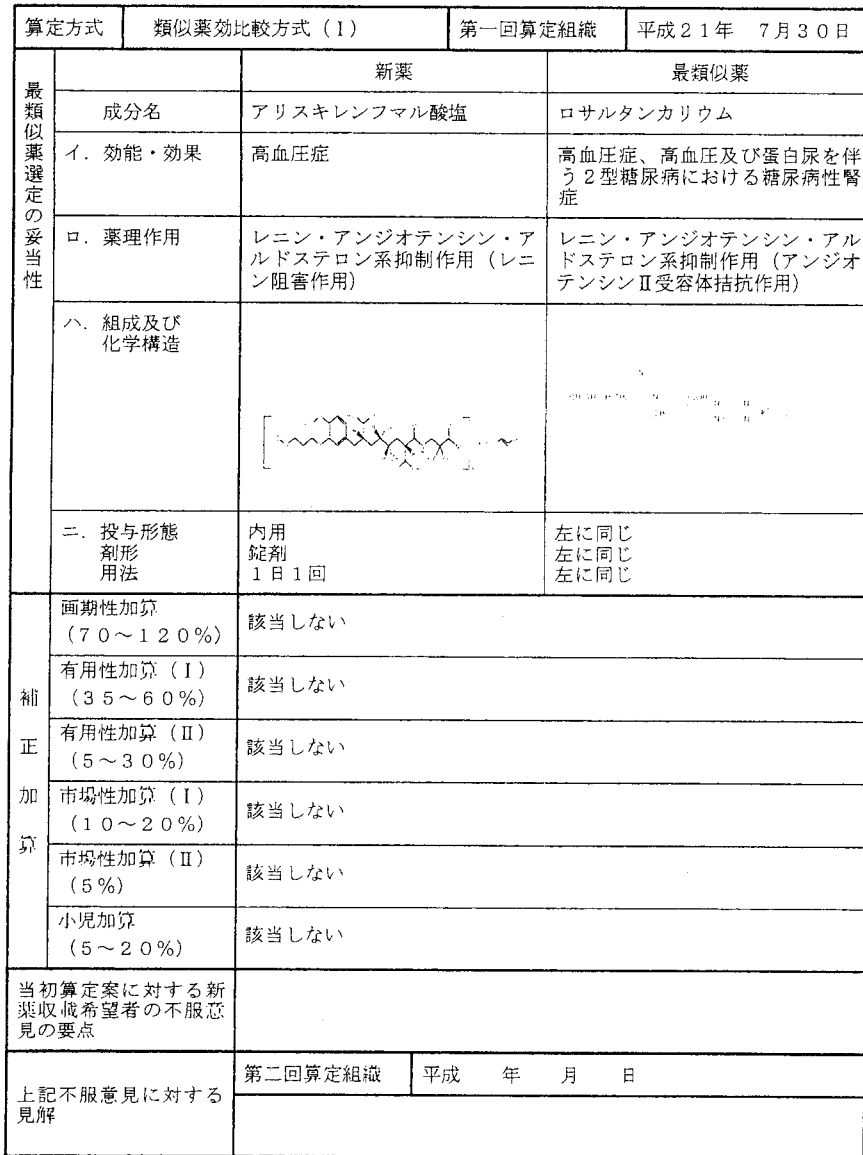 算定方式 類似薬効比較方式(Ⅰ) 第一回算定組織 平成21年 7月30日
最類似薬選定の妥当性
新薬 最類似薬
成分名 アリスキレンフマル酸塩 ロサルタンカリウム
イ.効能・効果 高血圧症
高血圧症、高血圧及び蛋白尿を伴
う2型糖尿病における糖尿病性腎
症
ロ.薬理作用
レニン・アンジオテンシン・ア
ルドステロン系抑制作用(レニ
ン阻害作用)
レニン・アンジオテンシン・アル
ドステロン系抑制作用(アンジオ
テンシンⅡ受容体拮抗作用)
ハ.組成及び
化学構造
ニ.投与形態 内用 左に同じ
剤形 錠剤 左に同じ
用法 1日1回 左に同じ
補正加算
画期性加算
(70~120%)
該当しない
有用性加算(Ⅰ)
(35~60%)
該当しない
有用性加算(Ⅱ)
(5~30%)
該当しない
市場性加算(Ⅰ)
(10~20%)
該当しない
市場性加算(Ⅱ)
(5%)
該当しない
小児加算
(5~20%)
該当しない
当初算定案に対する新
薬収載希望者の不服意
見の要点
上記不服意見に対する
見解
第二回算定組織 平成 年 月 日